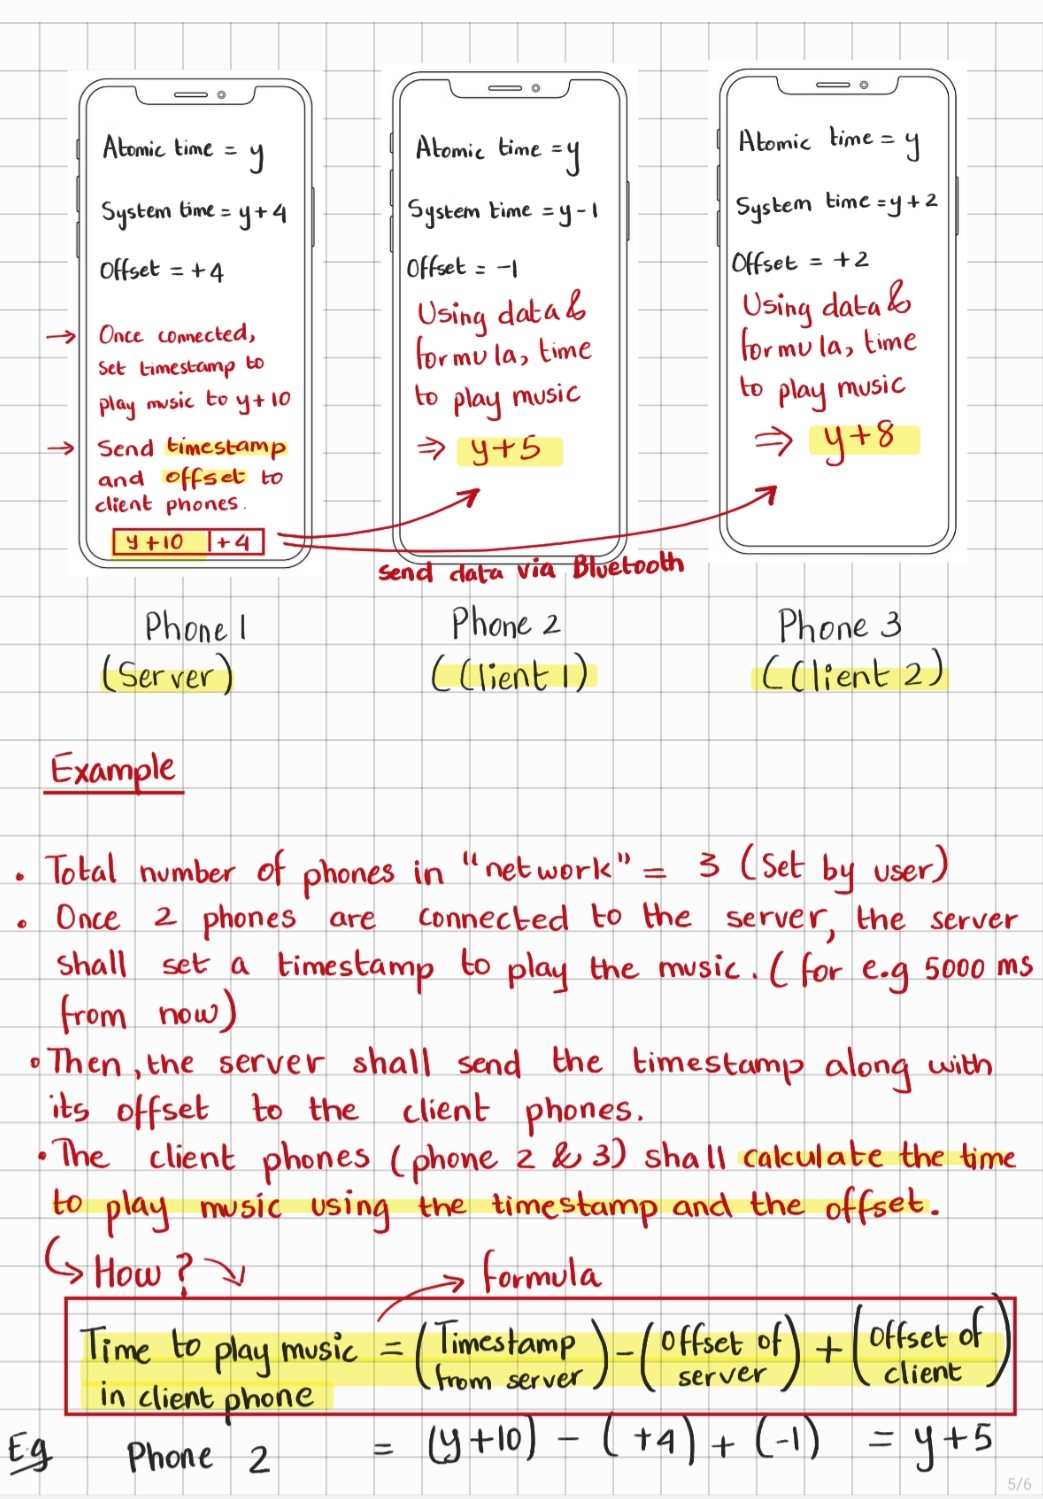 Atomic time = y
System time = y+4
Offset = +4
→ Once connected,
set timestamp to
play music to y+10
→ Send timestamp
and offset to
client phones.
y+10 | +4
Atomic time = y
System time = y-1
Offset = -1
Using data &
formula, time
to play music
⇒ y+5
Atomic time = y
System time = y+2
Offset = +2
Using data &
formula, time
to play music
⇒ y+8
send data via Bluetooth
Phone 1
(Server)
Phone 2
(Client 1)
Phone 3
(Client 2)
Example
• Total number of phones in "network" = 3 (Set by user)
• Once 2 phones are connected to the server, the server
shall set a timestamp to play the music. (for e.g 5000 ms
from now)
• Then, the server shall send the timestamp along with
its offset to the client phones.
• The client phones (phone 2 & 3) shall calculate the time
to play music using the timestamp and the offset.
↳ How? → formula
Time to play music in client phone = (Timestamp from server) - (Offset of server) + (Offset of client)
E.g Phone 2 = (y+10) - (+4) + (-1) = y+5
5/6